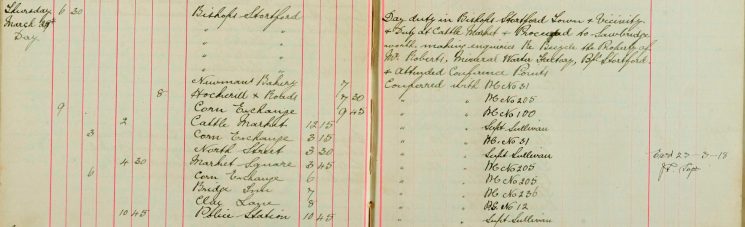 Thursday 6 30 Bishops Stortford Day duty in Bishops Stortford Town & Vicinity
March 21st " & Duty at Cattle Market & Proceed to Sawbridge
Day. " worth making enquiries Re Bicycle the Property of
" Mr. Roberts, Mineral Water Factory, B/s Stortford.
" & Attended Conference Points
Newmans Bakery 7 Conferred with P.C No 31
8 Hockerill & Roberts 7 30 " " P.C No 205
9 Corn Exchange 9 45 " " P.C No 100
2 Cattle Market 12 15 " " Supt Sullivan
3 Corn Exchange 3 15 " " P.C No 31
North Street 3 30 " " Supt Sullivan
4 30 Market Square 3 45 " " P.C No 205
6 Corn Exchange 6 " " P.C No 205
Bridge Inn 7 " " P.C No 236
Clay Lane 8 " " P.C No 12
10 45 Police Station 10 45 " " Supt Sullivan
23-3-18
Supt